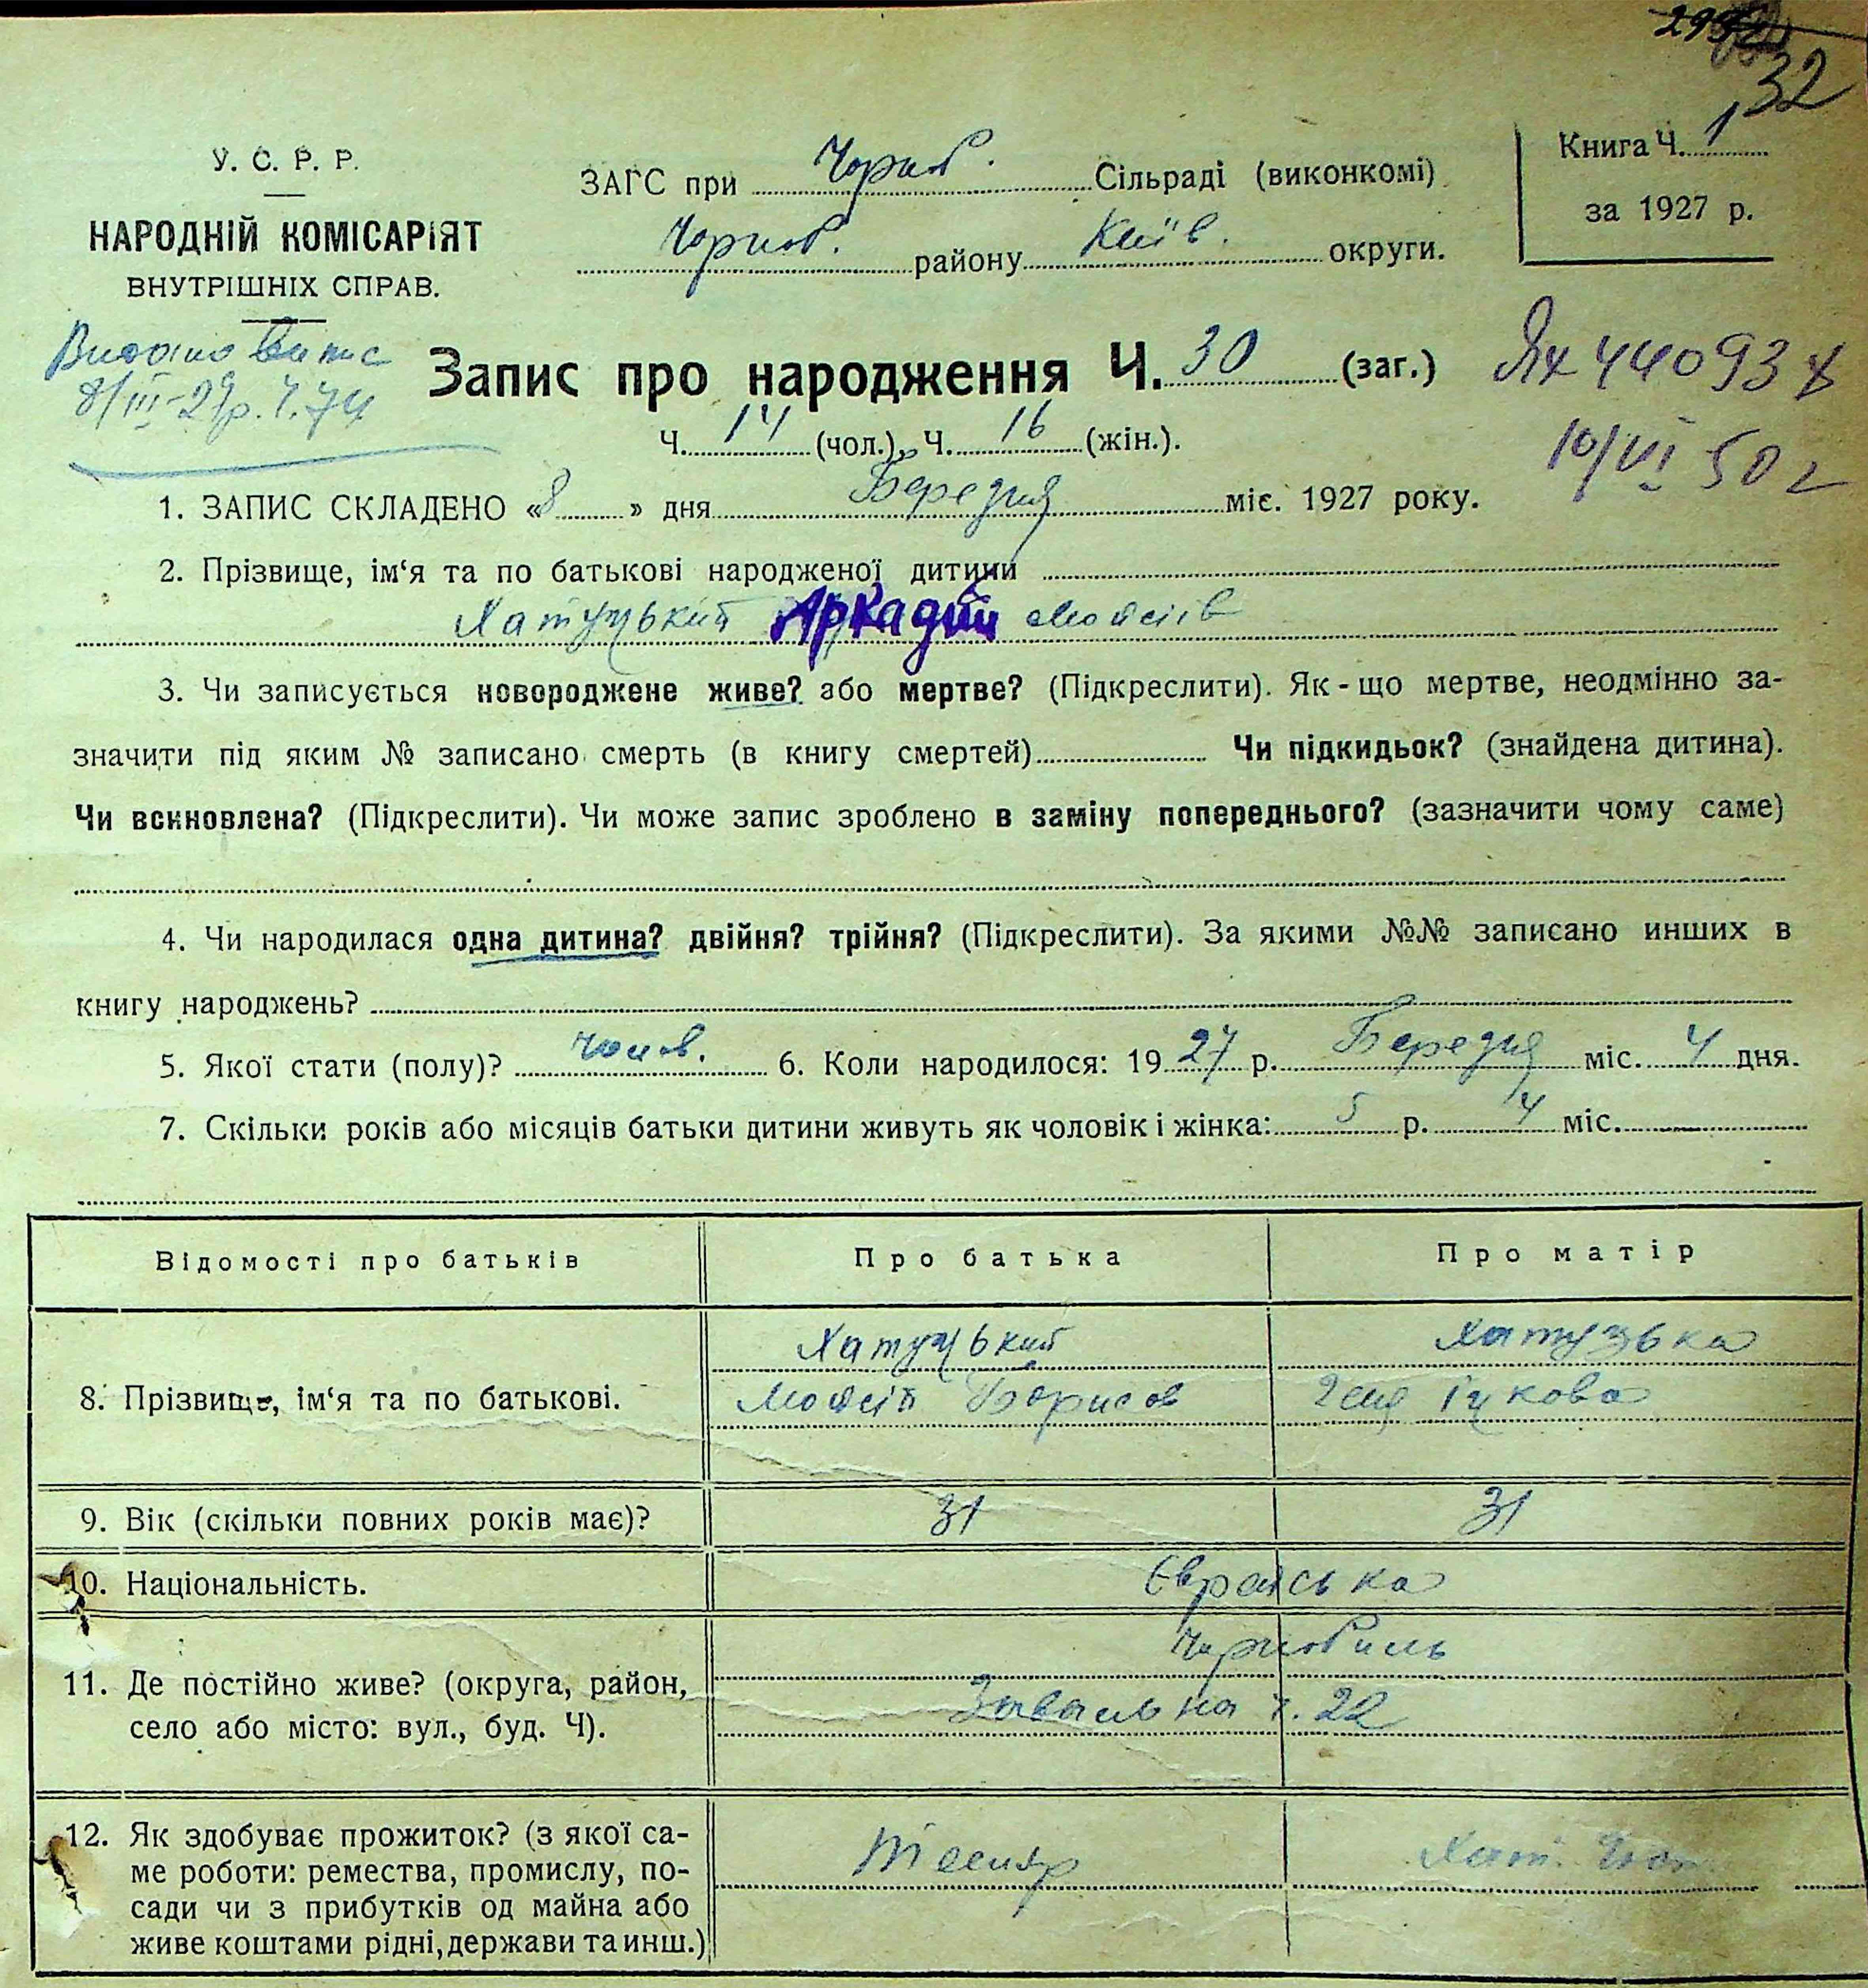 32
У. С. Р. Р.
НАРОДНІЙ КОМІСАРІЯТ
ВНУТРІШНІХ СПРАВ.
ЗАГС при Чорноб. Сільраді (виконкомі)
Чорноб. району Київ. округи.
Книга Ч. 1
за 1927 р.
Видано випис
8/III-29р. Ч. 74
Запис про народження Ч. 30 (заг.)
Ч. 14 (чол.), Ч. 16 (жін.).
Ях 440937
10/VI 50 г
1. ЗАПИС СКЛАДЕНО «8» дня Березня міс. 1927 року.
2. Прізвище, ім‘я та по батькові народженої дитини
Хатуцький Аркадий Мойсіїв
3. Чи записується новороджене живе? або мертве? (Підкреслити). Як-що мертве, неодмінно за-
значити під яким № записано смерть (в книгу смертей) Чи підкидьок? (знайдена дитина).
Чи вскновлена? (Підкреслити). Чи може запис зроблено в заміну попереднього? (зазначити чому саме)
4. Чи народилася одна дитина? двійня? трійня? (Підкреслити). За якими №№ записано инших в
книгу народжень?
5. Якої стати (полу)? чолов. 6. Коли народилося: 1927 р. Березня міс. 4 дня.
7. Скільки років або місяців батьки дитини живуть як чоловік і жінка: 5 р. 4 міс.
Відомості про батьків Про батька Про матір
Хатуцький Хатузька
8. Прізвище, ім‘я та по батькові. Мойсій Борисов Геня
9. Вік (скільки повних років має)? 31 31
10. Національність. Єврейська
Чорнобиль
11. Де постійно живе? (округа, район,
село або місто: вул., буд. Ч). Завальна ч. 22
12. Як здобуває прожиток? (з якої са-
ме роботи: ремества, промислу, по-
сади чи з прибутків од майна або
живе коштами рідні, держави та инш.)
Тесляр Хат.